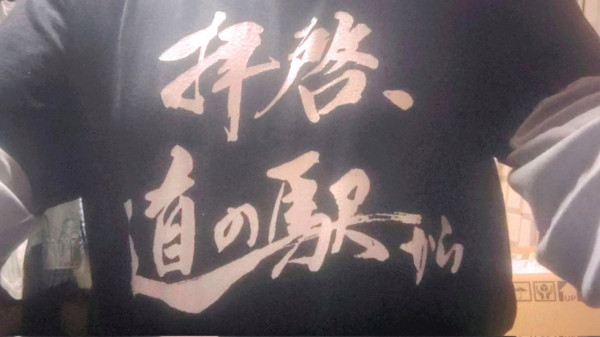 拝啓、
道の駅から
UP